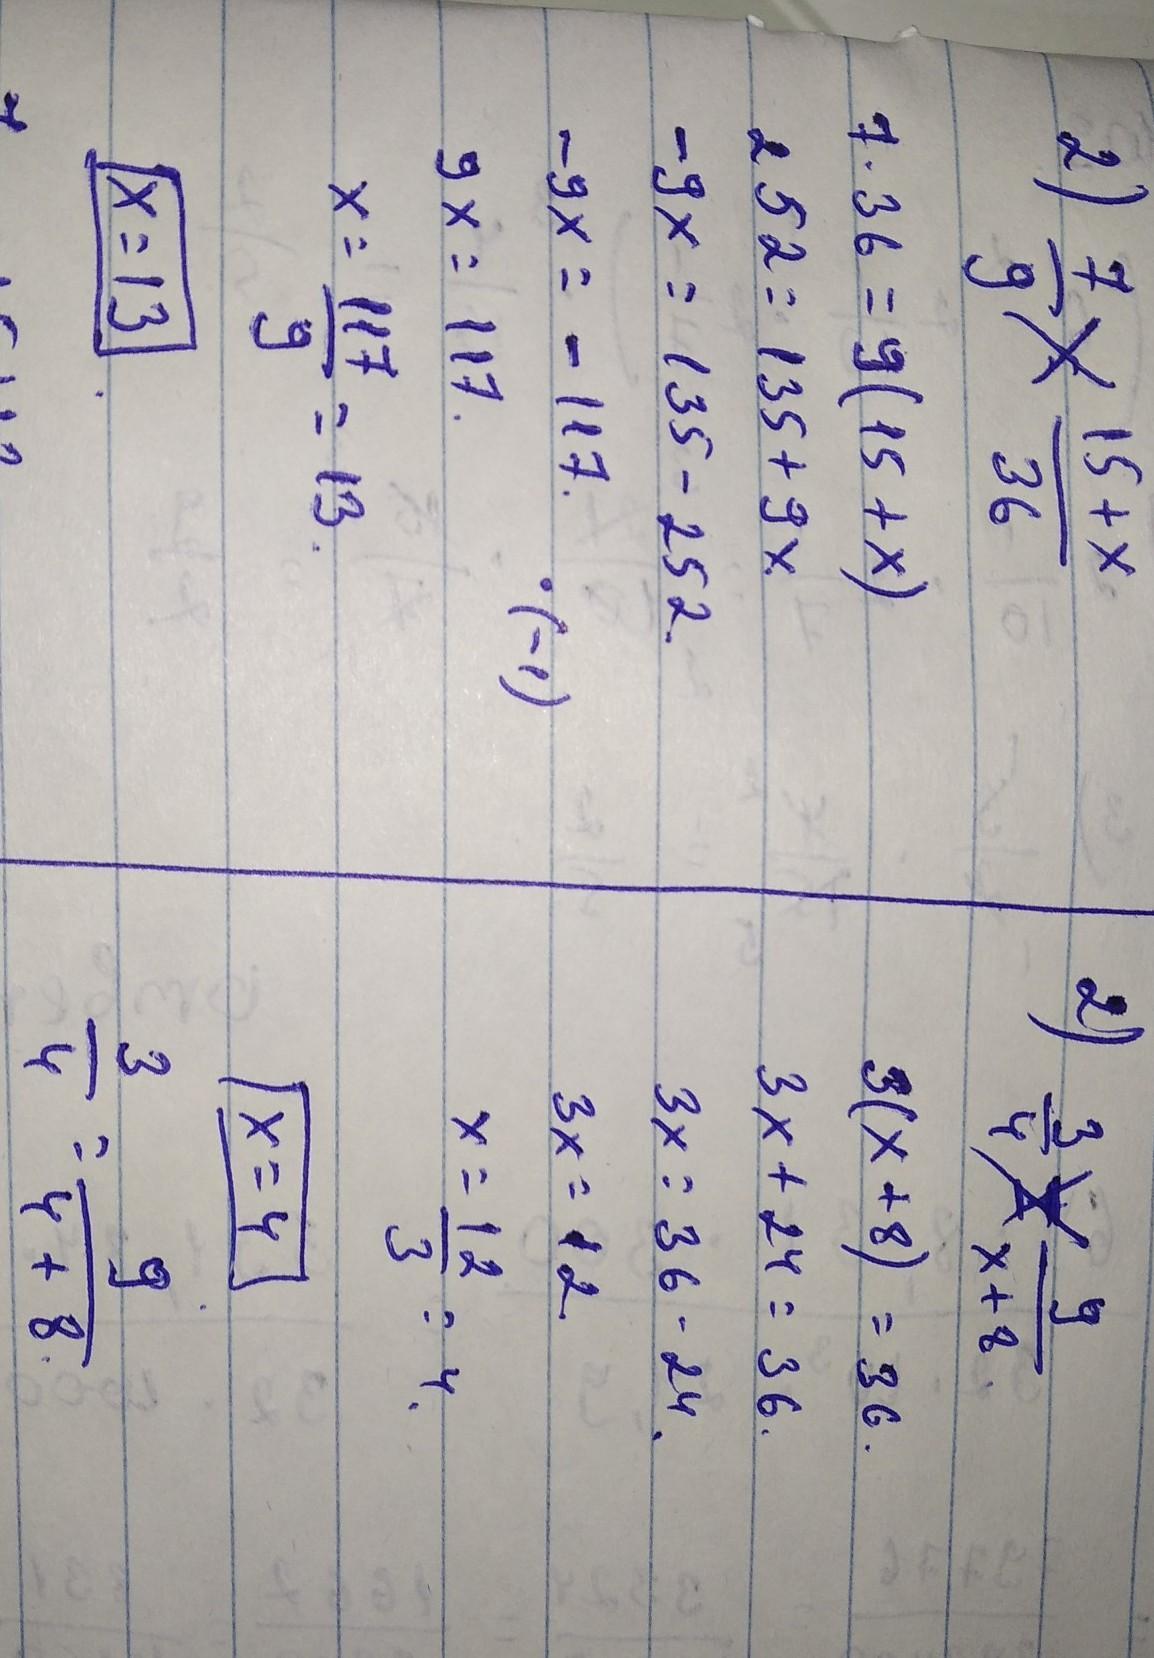 2) 7/9 15+x/36
7·36=9(15+x)
252=135+9x
-9x=135-252.
-9x=-117. ·(-1)
9x=117.
x=117/9=13.
x=13
2) 3/4 9/x+8.
3(x+8)=36.
3x+24=36.
3x=36-24.
3x=12.
x=12/3=4.
x=4
3/4=9/4+8.